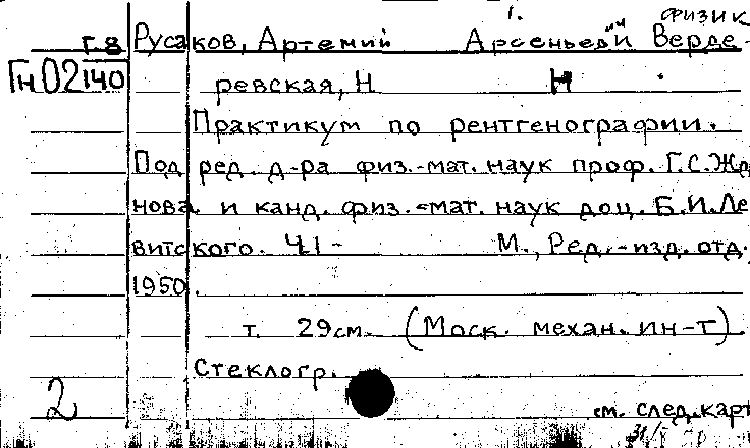 физик
г.8 Русаков, Артемий Арсеньевич и Верде-
Гн02140 ревская, Н Н
Практикум по рентгенографии.
Под ред. д-ра физ.-мат. наук проф. Г.С. Жда
нова и канд. физ.-мат. наук доц. Б.И. Ле
витского. Ч.1- М., Ред.-изд. отд.
1950.
т. 29см. (Моск. механ. ин-т).
Стеклогр.
2 см. след. карт